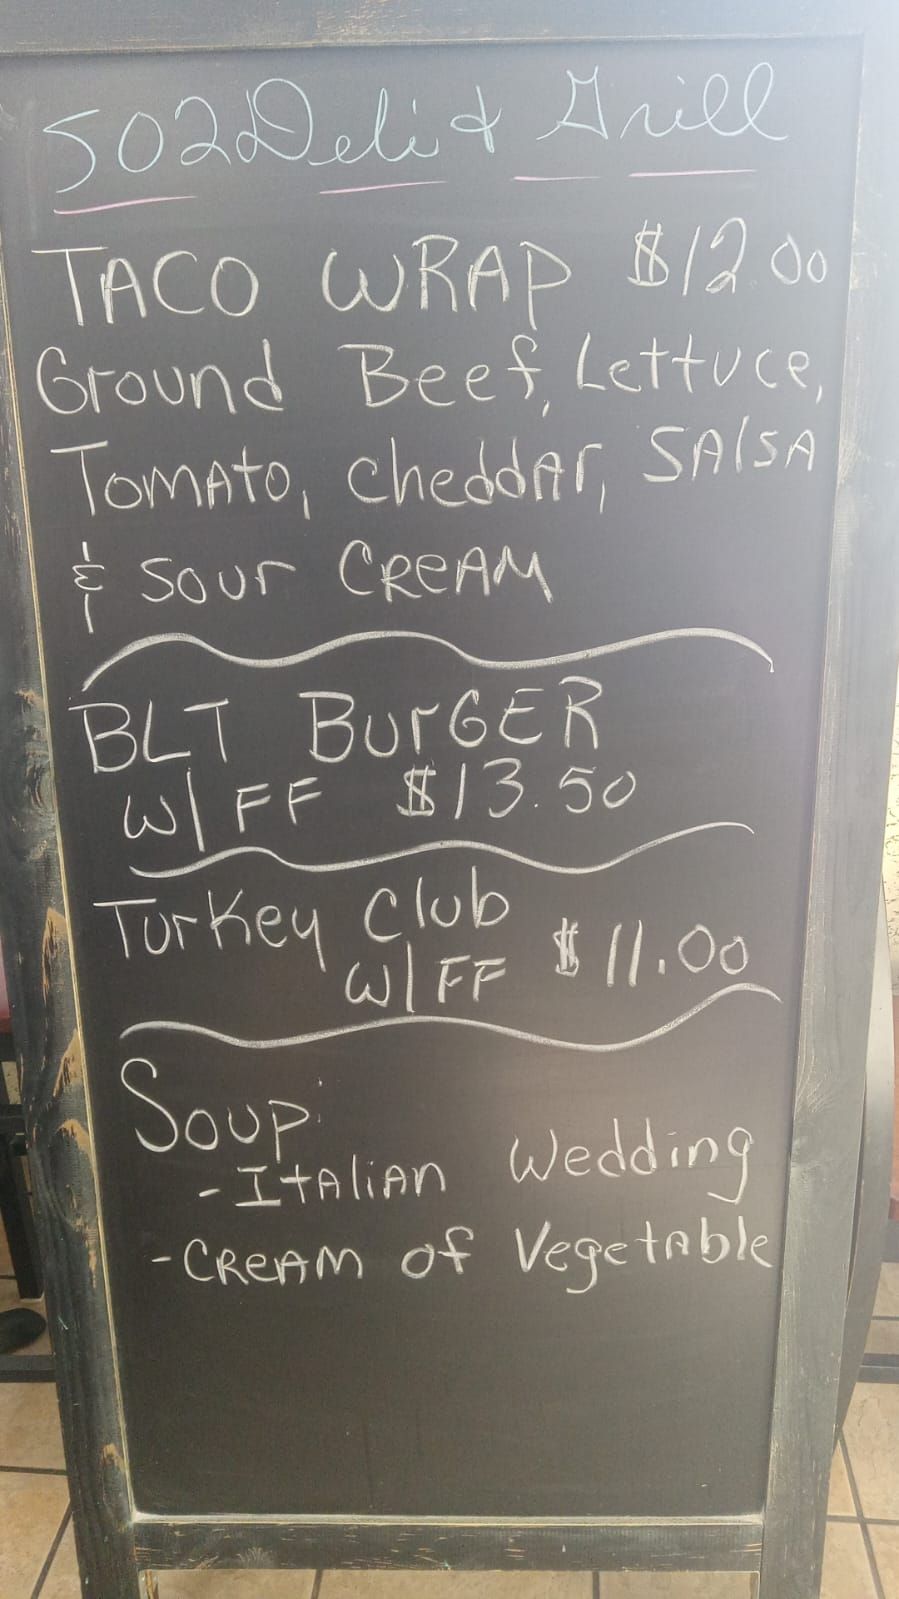 502 Deli & Grill
TACO WRAP $12.00
Ground Beef, Lettuce,
Tomato, cheddar, SAlSA
& Sour CREAM
BLT BurGER
w/ FF $13.50
Turkey Club
w/ FF $11.00
Soup:
- ItAliAn Wedding
- CREAM of Vegetable